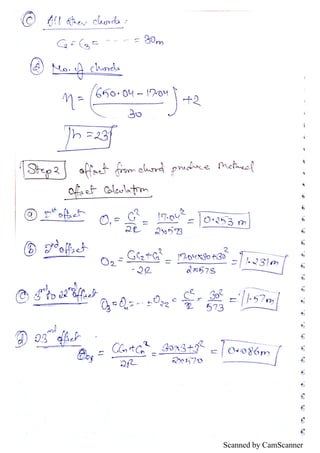 Ⓒ All other chords :
C₂ = C₃ = - - - - = 30m
ⓓ No. of chords
n = (650.04 - 17.04 / 30) + 2
n = 23
Step 2 offset from chord produce method
offset Calculation
ⓐ 1st offset O₁ = C₁² / 2R = 17.04² / 2×573 = 0.253 m
ⓑ 2nd offset O₂ = CC₂+C₂² / 2R = 17.04×30+30² / 2×573 = 1.231m
ⓒ 3rd to 22nd offset O₃ = O₄ = - - - = O₂₂ = C² / R = 30² / 573 = 1.57m
ⓓ 23rd offset O₂₃ = CCn+Cn² / 2R = 30×3+3² / 2×570 = 0.086m
Scanned by CamScanner